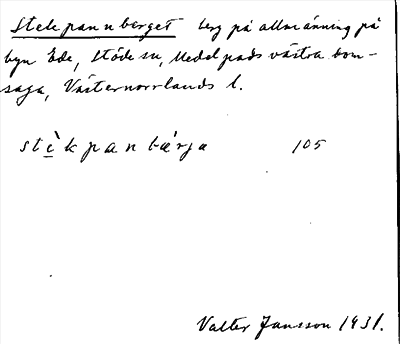 Stekpannberget berg på allmänning på
byn Ede, Stöde sn, Medelpads västra dom-
saga, Västernorrlands l.
stèkpanbærja 105
Valter Jansson 1931.